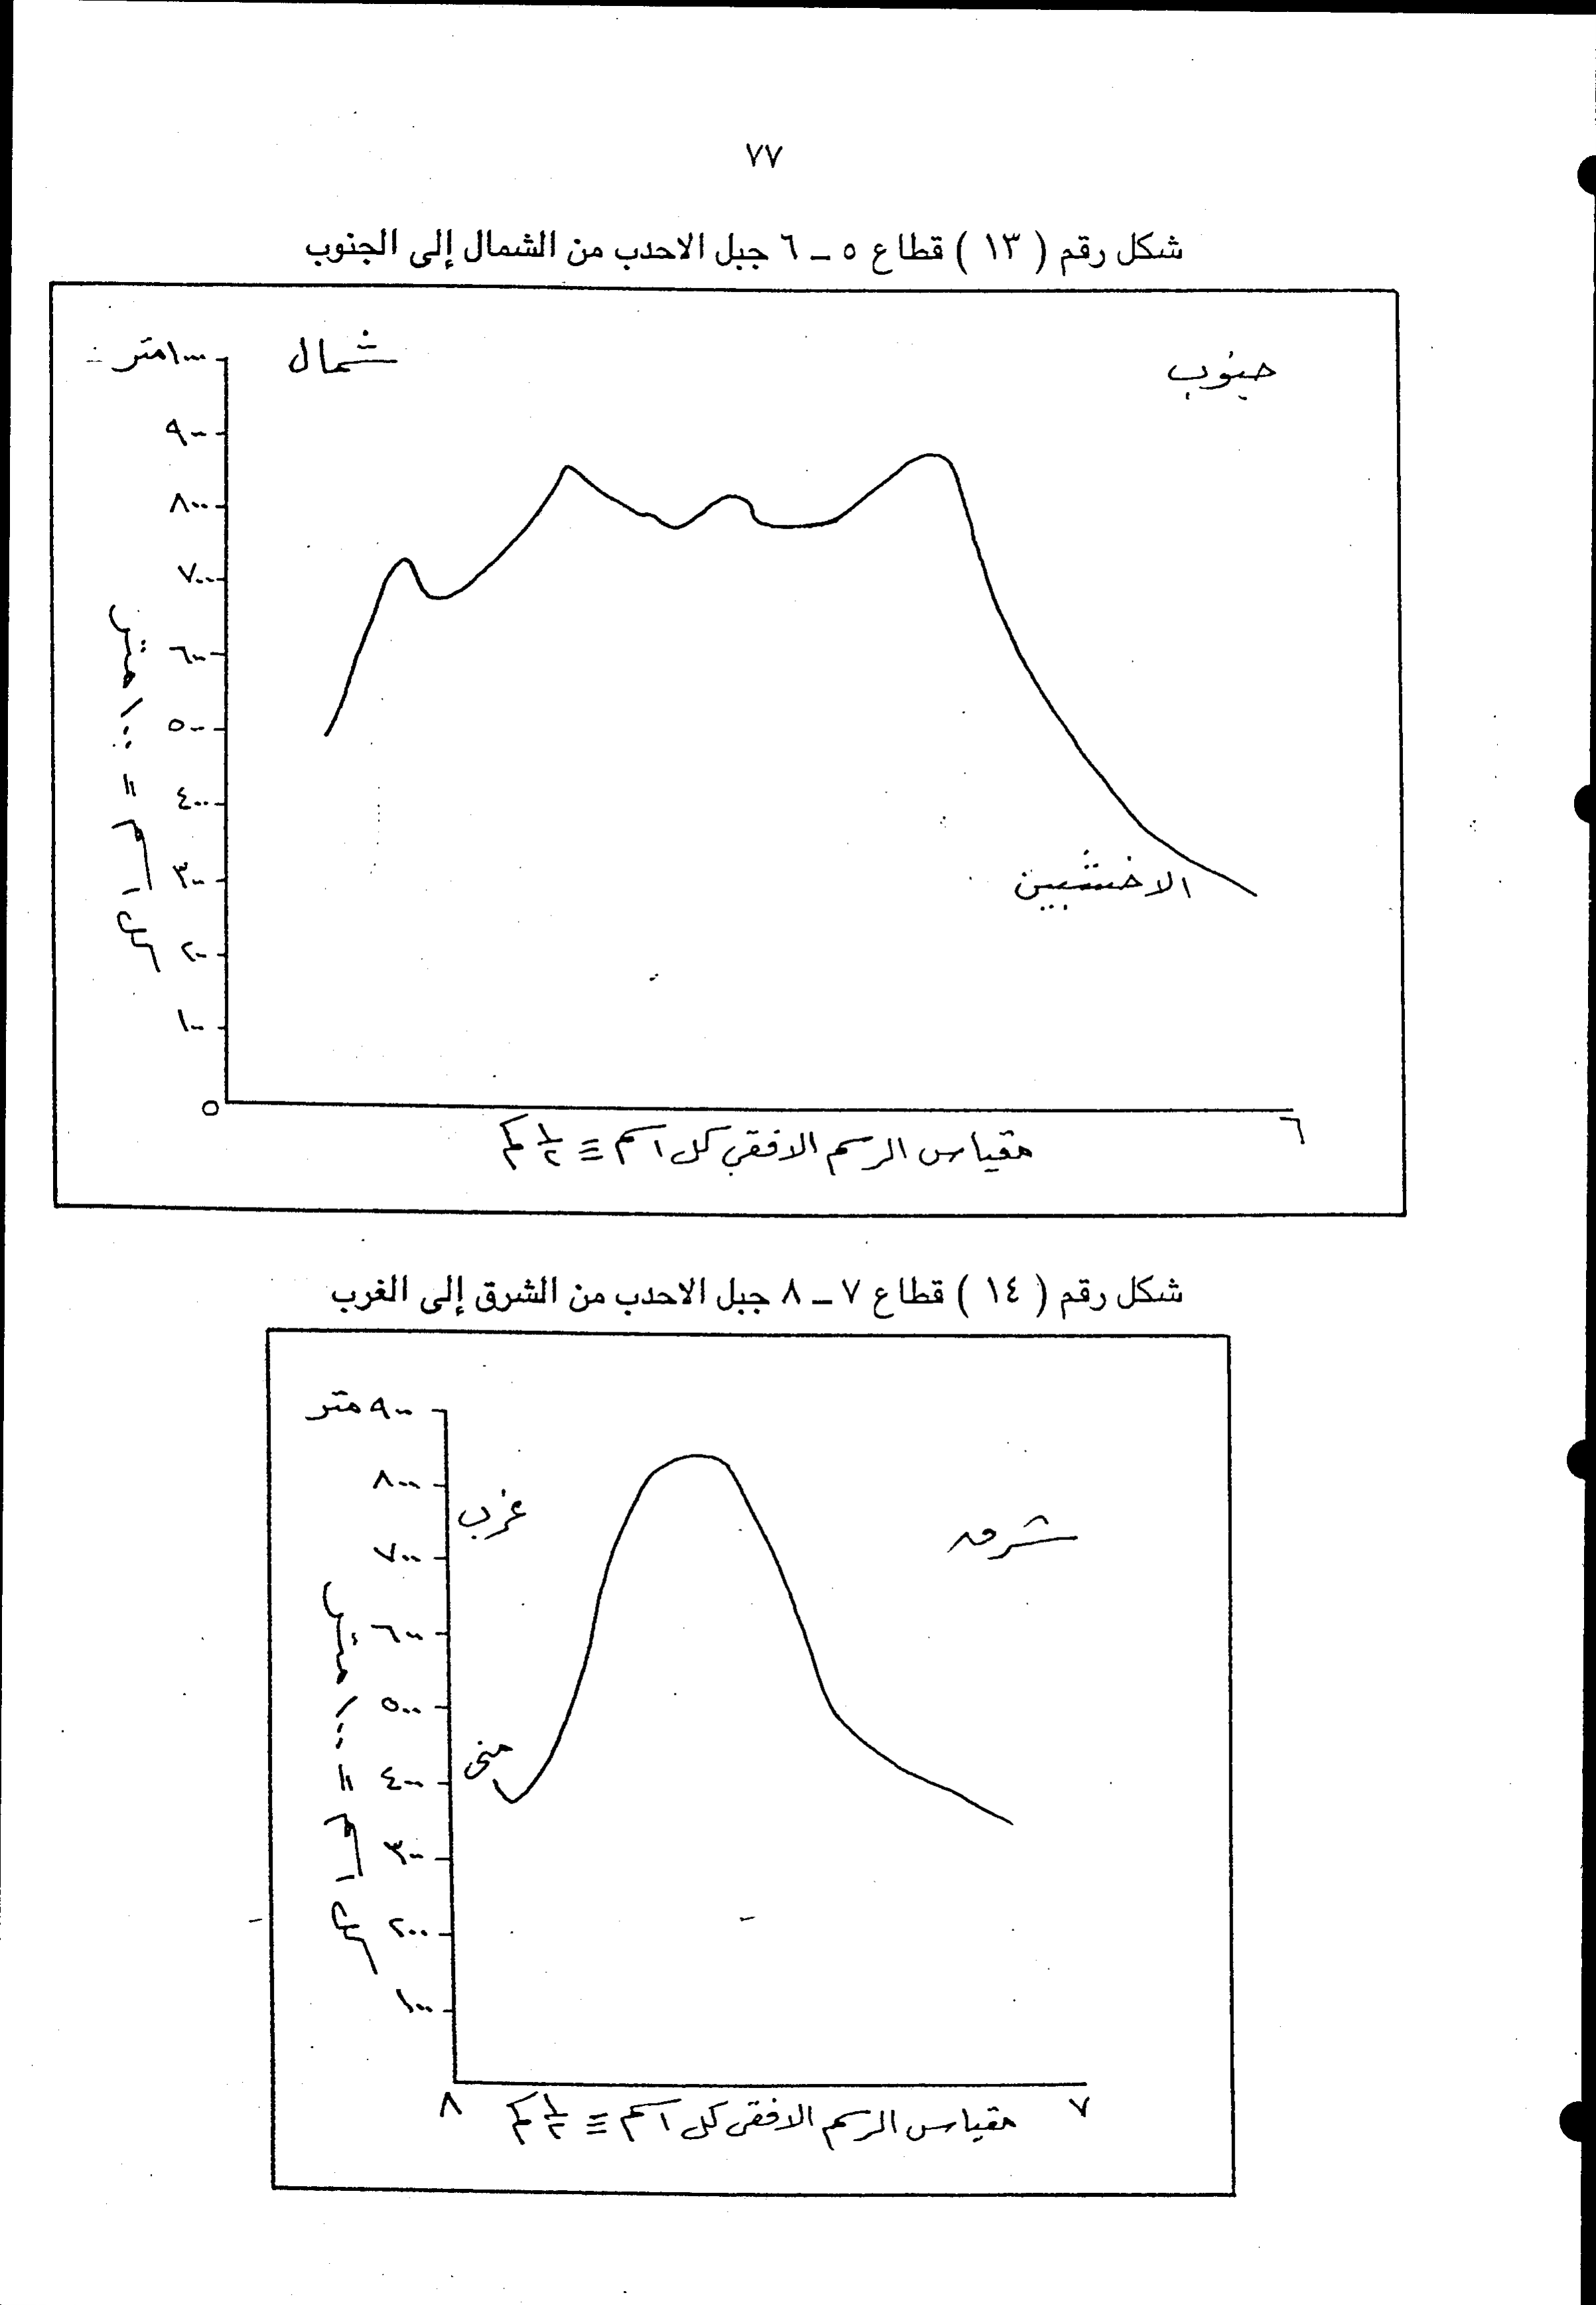 ٧٧
شكل رقم ( ١٣ ) قطاع ٥ ــ ٦ جبل الاحدب من الشمال إلى الجنوب
شمال
جنوب
١٠٠٠ متر
٩٠٠
٨٠٠
٧٠٠
٦٠٠
٥٠٠
٤٠٠
٣٠٠
٢٠٠
١٠٠
كل ١ سم = ١٠٠ متر
الاخشبين
٥
٦
مقياس الرسم الافقي كل ١ سم ≡ ١/٢ كم
شكل رقم ( ١٤ ) قطاع ٧ ــ ٨ جبل الاحدب من الشرق إلى الغرب
٩٠٠ متر
٨٠٠
٧٠٠
٦٠٠
٥٠٠
٤٠٠
٣٠٠
٢٠٠
١٠٠
غرب
شرق
كل ١ سم = ١٠٠ متر
منى
٨
٧
مقياس الرسم الافقى كل ١ سم ≡ ١/٢ كم